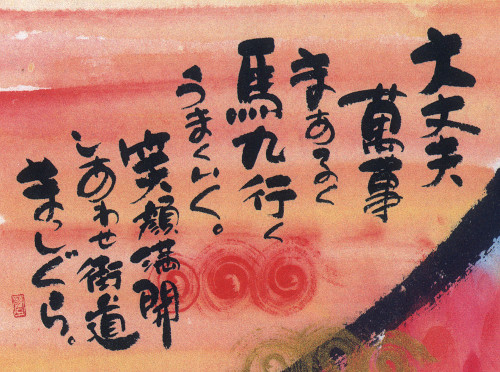 大丈夫
萬事
まあるく
馬九行く
うまくいく。
笑顔満開
しあわせ街道
まっしぐら。